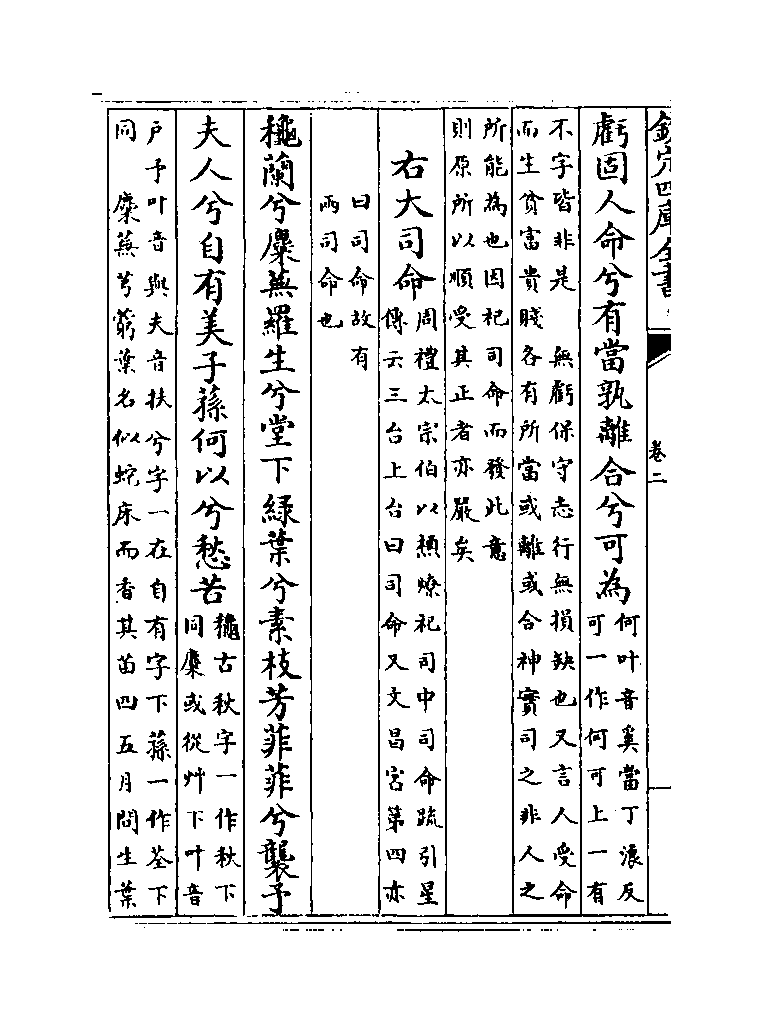 欽定四庫全書
卷二
虧固人命兮有當孰離合兮可為
何叶音奚當丁浪反
可一作何可上一有
不字皆非是　無虧保守志行無損缺也又言人受命
而生貧富貴賤各有所當或離或合神實司之非人之
所能為也因祀司命而發此意
則原所以順受其正者亦嚴矣
右大司命
周禮太宗伯以槱燎祀司中司命疏引星
傳云三台上台曰司命又文昌宮第四亦
曰司命故有
兩司命也
穐蘭兮麋蕪羅生兮堂下綠葉兮素枝芳菲菲兮襲予
夫人兮自有美子蓀何以兮愁苦
穐古秋字一作秋下
同麋或從艸下叶音
戶予叶音與夫音扶兮字一在自有字下蓀一作荃下
同　麋蕪芎藭葉名似蛇床而香其苗四五月間生葉